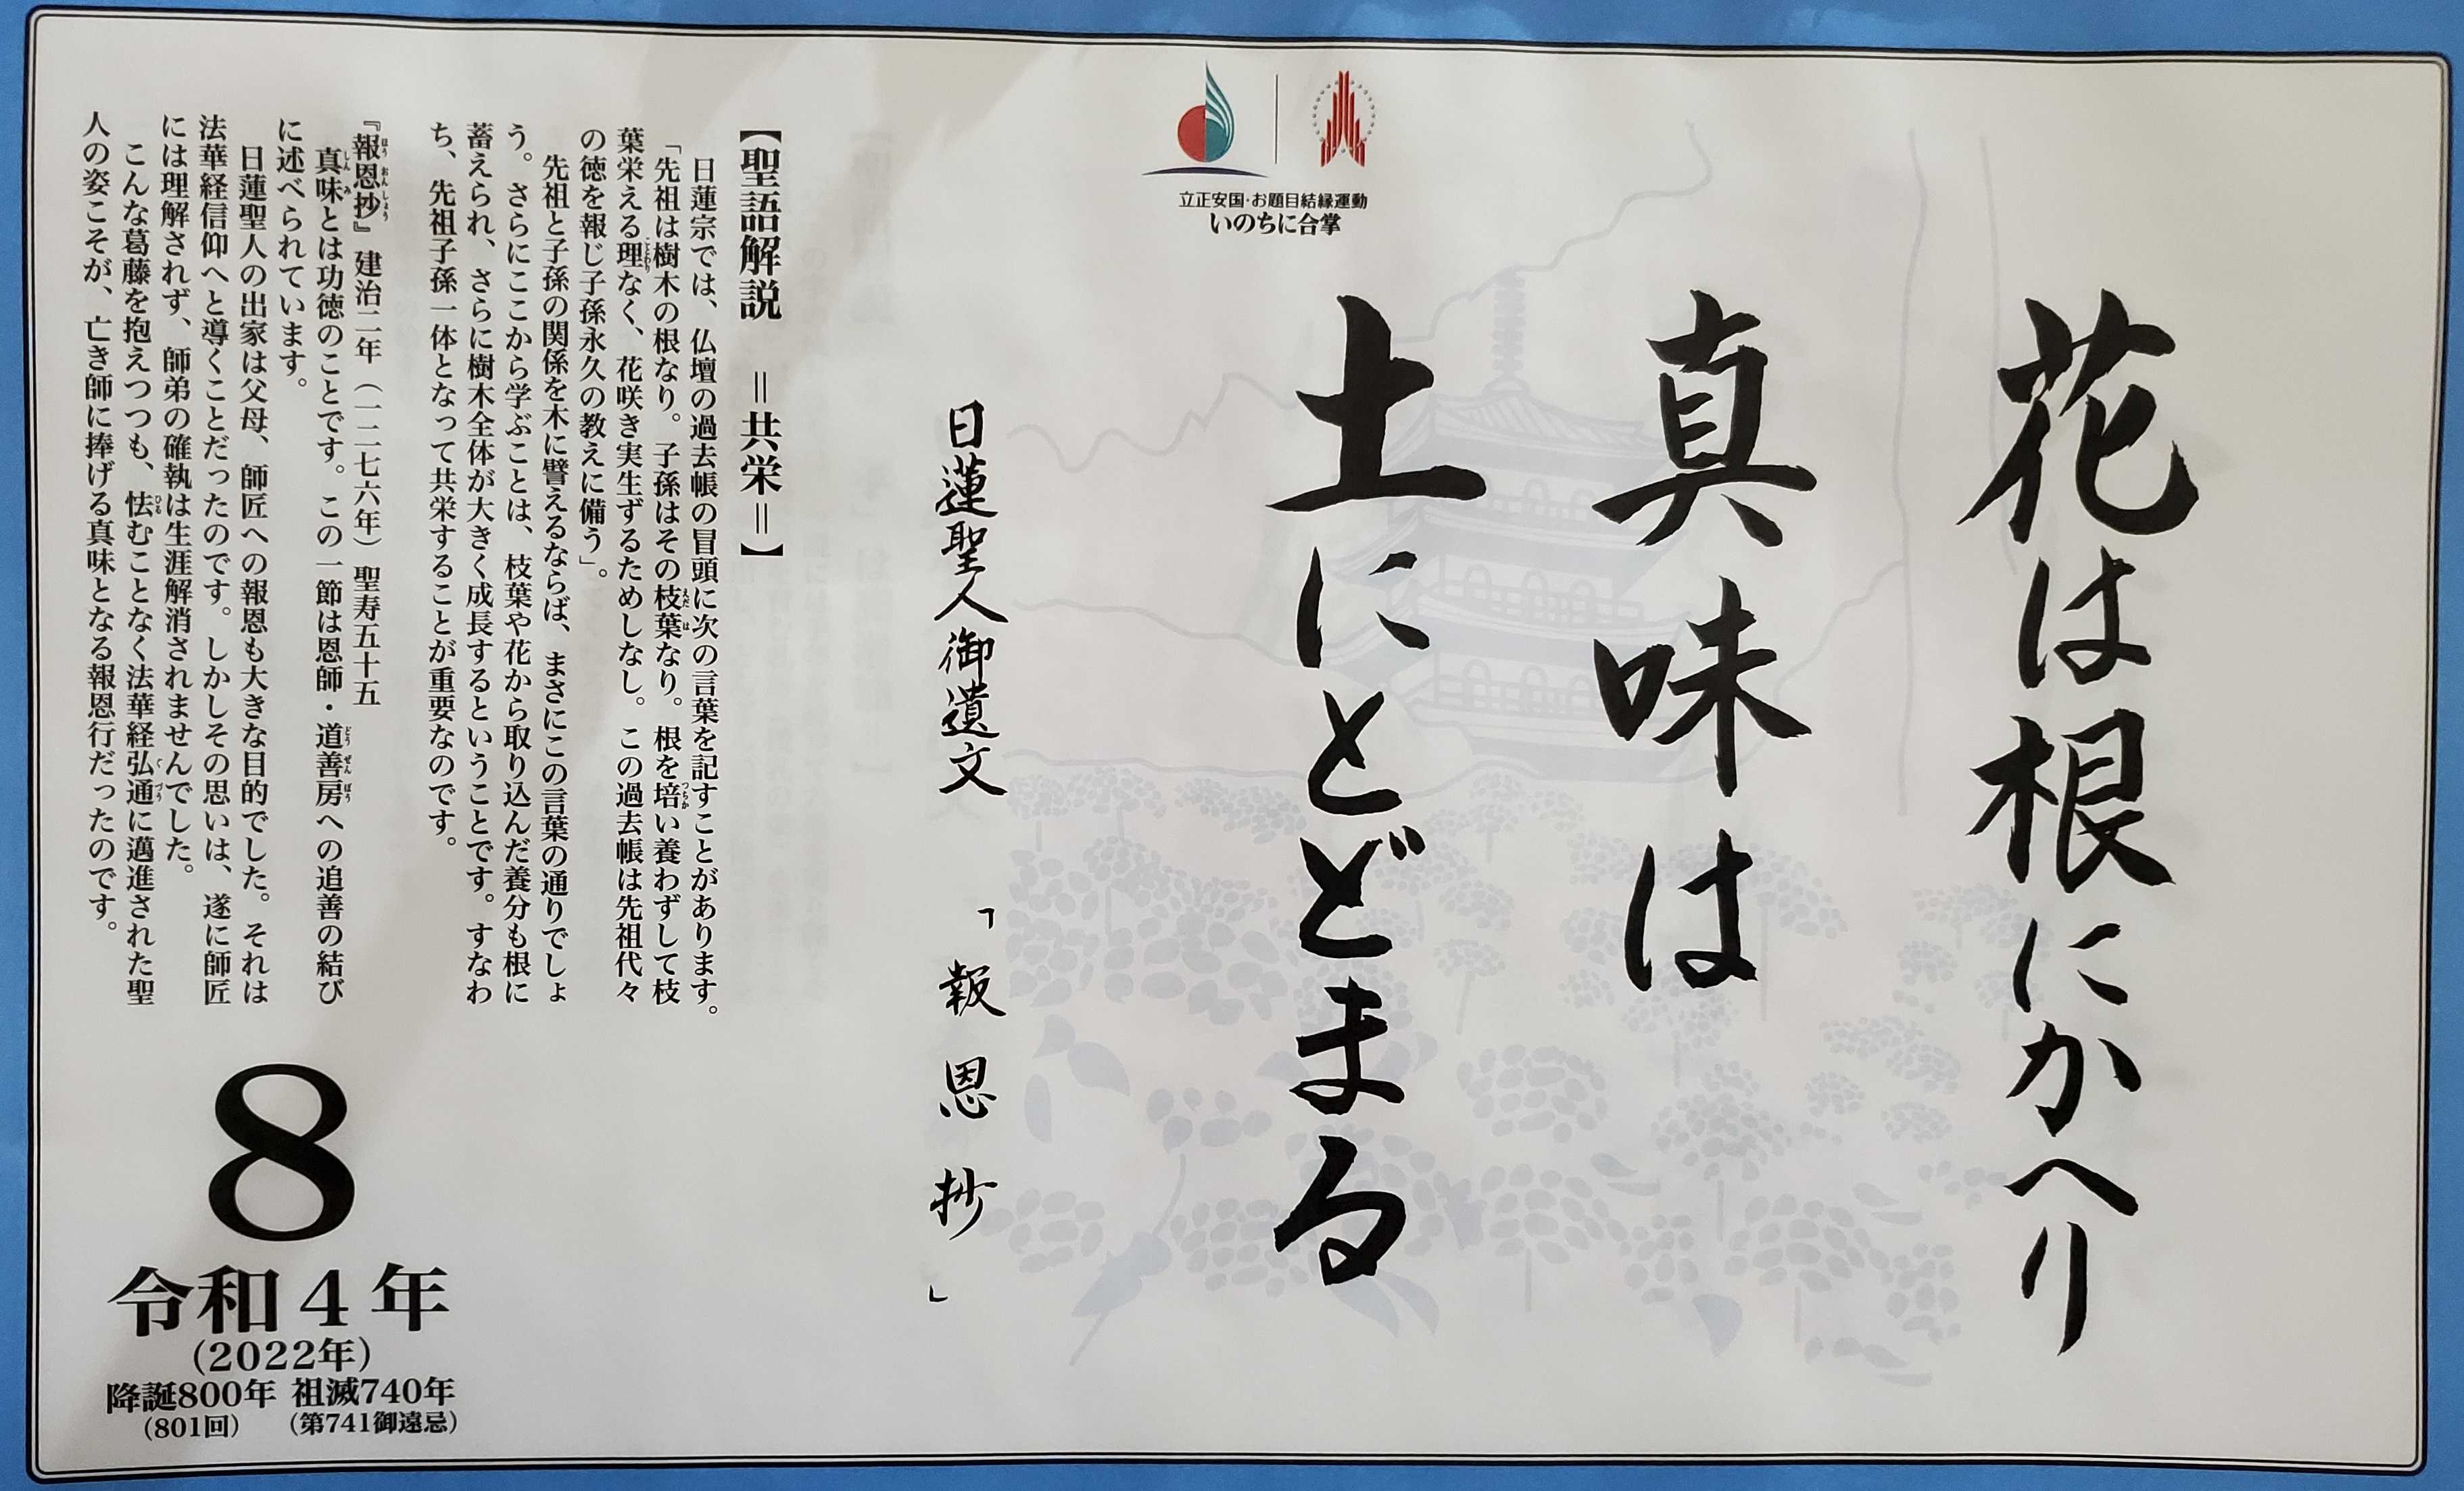 花は根にかへり
真味は
土にとどまる
日蓮聖人御遺文 「報恩抄」
立正安国・お題目結縁運動
いのちに合掌
【聖語解説 =共栄=】
日蓮宗では、仏壇の過去帳の冒頭に次の言葉を記すことがあります。
「先祖は樹木の根なり。子孫はその枝葉なり。根を培い養わずして枝
葉栄える理なく、花咲き実生ずるためしなし。この過去帳は先祖代々
の徳を報じ子孫永久の教えに備う」。
先祖と子孫の関係を木に譬えるならば、まさにこの言葉の通りでしょ
う。さらにここから学ぶことは、枝葉や花から取り込んだ養分も根に
蓄えられ、さらに樹木全体が大きく成長するということです。すなわ
ち、先祖子孫一体となって共栄することが重要なのです。
『報恩抄』建治二年（一二七六年）聖寿五十五
真味とは功徳のことです。この一節は恩師・道善房への追善の結び
に述べられています。
日蓮聖人の出家は父母、師匠への報恩も大きな目的でした。それは
法華経信仰へと導くことだったのです。しかしその思いは、遂に師匠
には理解されず、師弟の確執は生涯解消されませんでした。
こんな葛藤を抱えつつも、怯むことなく法華経弘通に邁進された聖
人の姿こそが、亡き師に捧げる真味となる報恩行だったのです。
8
令和4年
（2022年）
降誕800年 祖滅740年
（801回） （第741御遠忌）